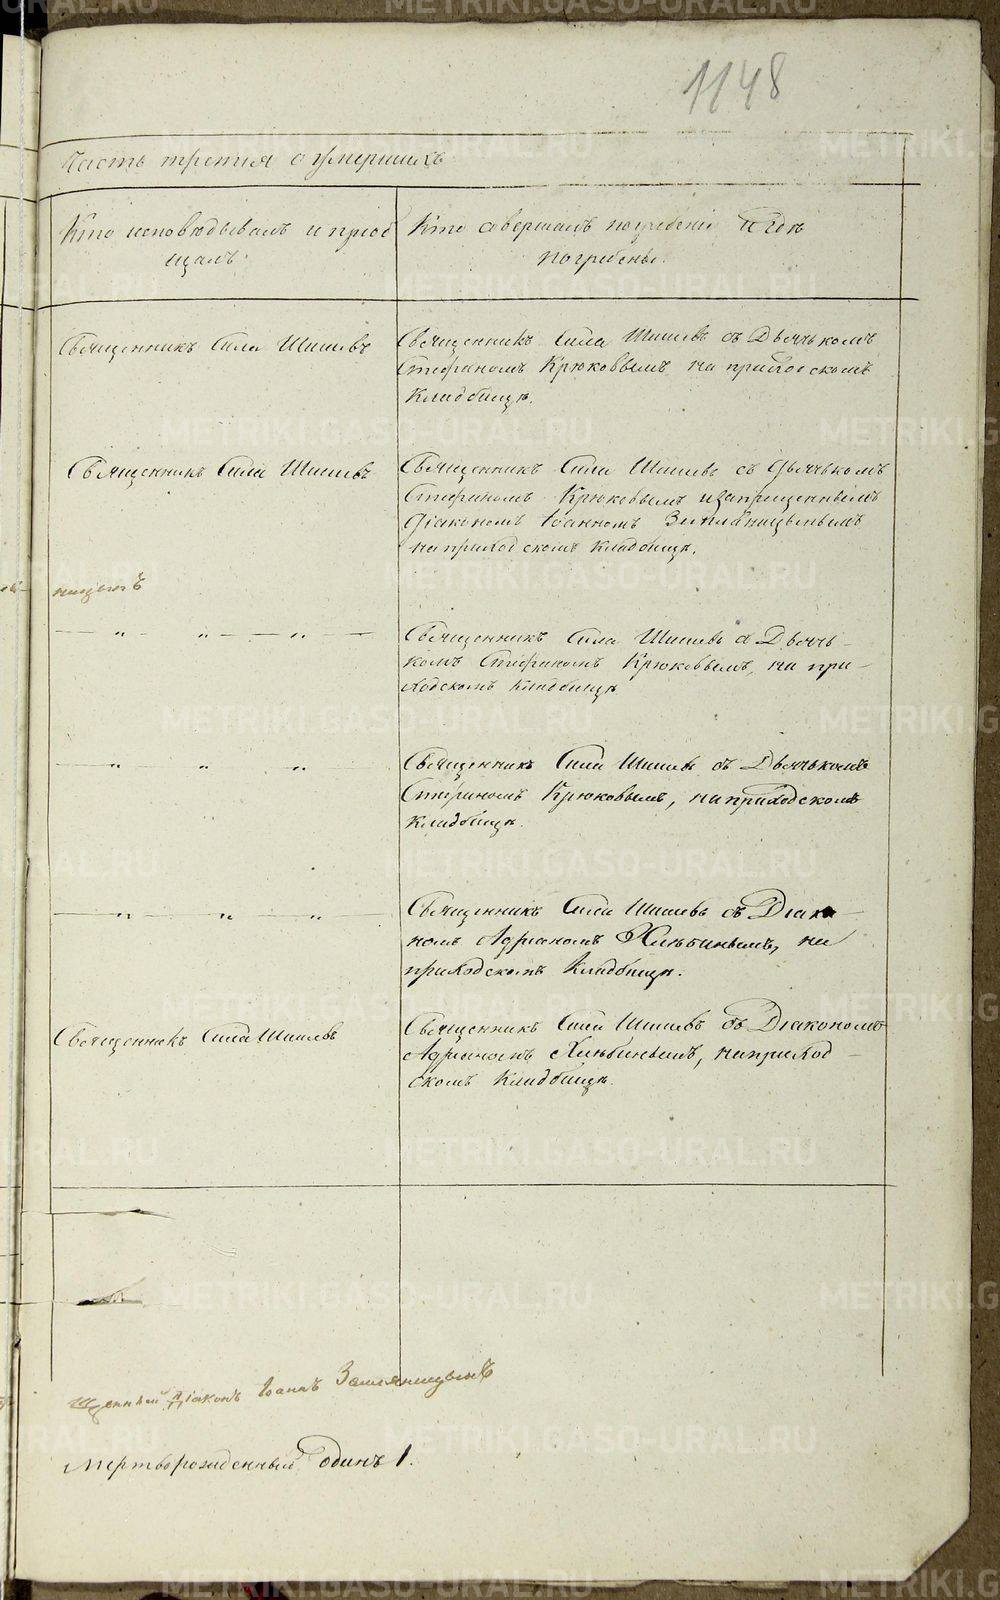 1148
Часть третия о умершихъ
Кто исповѣдывалъ и приоб
щалъ.
Кто совершалъ погребенiе и гдѣ
погребены.
Священникъ Сила Шишевъ
Священникъ Сила Шишевъ съ Дьячькомъ
Стефаномъ Крюковымъ на приходскомъ
кладбищѣ.
Священникъ Сила Шишевъ
Священникъ Сила Шишевъ съ Дьячькомъ
Стефаномъ Крюковымъ и запрещеннымъ
Дiакономъ Iоанномъ
на приходскомъ кладбищѣ.
Священникъ Сила Шишевъ съ Дьячь-
комъ Стефаномъ Крюковымъ, на при-
ходскомъ кладбищѣ
Священникъ Сила Шишевъ съ Дьячькомъ
Стефаномъ Крюковымъ, на приходскомъ
кладбищѣ.
Священникъ Сила Шишевъ съ Дiако-
номъ Адрiаномъ Хлынинымъ, на
приходскомъ кладбищѣ.
Священникъ Сила Шишевъ
Священникъ Сила Шишевъ съ Дiакономъ
Адрiаномъ Хлынинымъ, на приход-
скомъ кладбищѣ.
щенный Дiаконъ Iоаннъ
Мертворожденный одинъ 1.
METRIKI.GASO-URAL.RU